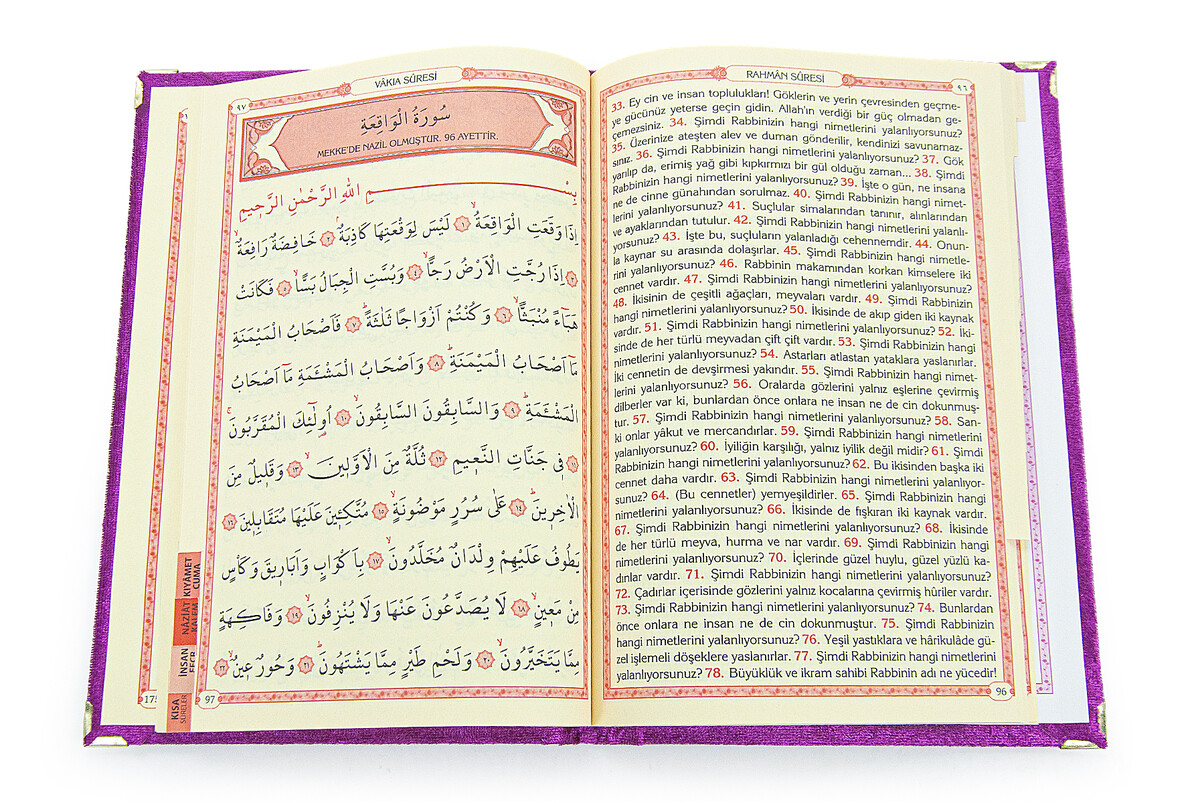 RAHMÂN SÛRESİ
٩٦
33. Ey cin ve insan toplulukları! Göklerin ve yerin çevresinden geçme-
ye gücünüz yeterse geçin gidin. Allah'ın verdiği bir güç olmadan ge-
çemezsiniz. 34. Şimdi Rabbinizin hangi nimetlerini yalanlıyorsunuz?
35. Üzerinize ateşten alev ve duman gönderilir, kendinizi savunamaz-
sınız. 36. Şimdi Rabbinizin hangi nimetlerini yalanlıyorsunuz? 37. Gök
yarılıp da, erimiş yağ gibi kıpkırmızı bir gül olduğu zaman... 38. Şimdi
Rabbinizin hangi nimetlerini yalanlıyorsunuz? 39. İşte o gün, ne insana
ne de cinne günahından sorulmaz. 40. Şimdi Rabbinizin hangi nimet-
lerini yalanlıyorsunuz? 41. Suçlular simalarından tanınır, alınlarından
ve ayaklarından tutulur. 42. Şimdi Rabbinizin hangi nimetlerini yalanlı-
yorsunuz? 43. İşte bu, suçluların yalanladığı cehennemdir. 44. Onun-
la kaynar su arasında dolaşırlar. 45. Şimdi Rabbinizin hangi nimetle-
rini yalanlıyorsunuz? 46. Rabbinin makamından korkan kimselere iki
cennet vardır. 47. Şimdi Rabbinizin hangi nimetlerini yalanlıyorsunuz?
48. İkisinin de çeşitli ağaçları, meyvaları vardır. 49. Şimdi Rabbinizin
hangi nimetlerini yalanlıyorsunuz? 50. İkisinde de akıp giden iki kaynak
vardır. 51. Şimdi Rabbinizin hangi nimetlerini yalanlıyorsunuz? 52. İki-
sinde de her türlü meyvadan çift çift vardır. 53. Şimdi Rabbinizin hangi
nimetlerini yalanlıyorsunuz? 54. Astarları atlastan yataklara yaslanırlar.
İki cennetin de devşirmesi yakındır. 55. Şimdi Rabbinizin hangi nimet-
lerini yalanlıyorsunuz? 56. Oralarda gözlerini yalnız eşlerine çevirmiş
dilberler var ki, bunlardan önce onlara ne insan ne de cin dokunmuş-
tur. 57. Şimdi Rabbinizin hangi nimetlerini yalanlıyorsunuz? 58. San-
ki onlar yâkut ve mercandırlar. 59. Şimdi Rabbinizin hangi nimetlerini
yalanlıyorsunuz? 60. İyiliğin karşılığı, yalnız iyilik değil midir? 61. Şimdi
Rabbinizin hangi nimetlerini yalanlıyorsunuz? 62. Bu ikisinden başka iki
cennet daha vardır. 63. Şimdi Rabbinizin hangi nimetlerini yalanlıyor-
sunuz? 64. (Bu cennetler) yemyeşildirler. 65. Şimdi Rabbinizin hangi
nimetlerini yalanlıyorsunuz? 66. İkisinde de fışkıran iki kaynak vardır.
67. Şimdi Rabbinizin hangi nimetlerini yalanlıyorsunuz? 68. İkisinde
de her türlü meyva, hurma ve nar vardır. 69. Şimdi Rabbinizin hangi
nimetlerini yalanlıyorsunuz? 70. İçlerinde güzel huylu, güzel yüzlü ka-
dınlar vardır. 71. Şimdi Rabbinizin hangi nimetlerini yalanlıyorsunuz?
72. Çadırlar içerisinde gözlerini yalnız kocalarına çevirmiş hûriler vardır.
73. Şimdi Rabbinizin hangi nimetlerini yalanlıyorsunuz? 74. Bunlardan
önce onlara ne insan ne de cin dokunmuştur. 75. Şimdi Rabbinizin
hangi nimetlerini yalanlıyorsunuz? 76. Yeşil yastıklara ve hârikulâde gü-
zel işlemeli döşeklere yaslanırlar. 77. Şimdi Rabbinizin hangi nimetlerini
yalanlıyorsunuz? 78. Büyüklük ve ikram sahibi Rabbinin adı ne yücedir!
96
VÂKIA SÛRESİ
٩٧
سُورَةُ الْوَاقِعَةِ
MEKKE'DE NAZİL OLMUŞTUR. 96 AYETTİR.
بِسْمِ اللهِ الرَّحْمٰنِ الرَّح۪يمِ
اِذَا وَقَعَتِ الْوَاقِعَةُۙ ﴿١﴾ لَيْسَ لِوَقْعَتِهَا كَاذِبَةٌۘ ﴿٢﴾ خَافِضَةٌ رَافِعَةٌۙ
﴿٣﴾ اِذَا رُجَّتِ الْاَرْضُ رَجًّاۙ ﴿٤﴾ وَبُسَّتِ الْجِبَالُ بَسًّاۙ ﴿٥﴾ فَكَانَتْ
هَبَٓاءً مُنْبَثًّاۙ ﴿٦﴾ وَكُنْتُمْ اَزْوَاجًا ثَلٰثَةًۜ ﴿٧﴾ فَاَصْحَابُ الْمَيْمَنَةِ
مَٓا اَصْحَابُ الْمَيْمَنَةِۜ ﴿٨﴾ وَاَصْحَابُ الْمَشْـَٔمَةِ مَٓا اَصْحَابُ
الْمَشْـَٔمَةِۜ ﴿٩﴾ وَالسَّابِقُونَ السَّابِقُونَۙ ﴿١٠﴾ اُو۬لٰٓئِكَ الْمُقَرَّبُونَۚ
﴿١١﴾ ف۪ي جَنَّاتِ النَّع۪يمِ ﴿١٢﴾ ثُلَّةٌ مِنَ الْاَوَّل۪ينَۙ ﴿١٣﴾ وَقَل۪يلٌ مِنَ
الْاٰخِر۪ينَۜ ﴿١٤﴾ عَلٰى سُرُرٍ مَوْضُونَةٍۙ ﴿١٥﴾ مُتَّكِـ۪ٔينَ عَلَيْهَا مُتَقَابِل۪ينَ ﴿١٦﴾
يَطُوفُ عَلَيْهِمْ وِلْدَانٌ مُخَلَّدُونَۙ ﴿١٧﴾ بِاَكْوَابٍ وَاَبَار۪يقَ وَكَأْسٍ
مِنْ مَع۪ينٍۙ ﴿١٨﴾ لَا يُصَدَّعُونَ عَنْهَا وَلَا يُنْزِفُونَۙ ﴿١٩﴾ وَفَاكِهَةٍ
مِمَّا يَتَخَيَّرُونَۙ ﴿٢٠﴾ وَلَحْمِ طَيْرٍ مِمَّا يَشْتَهُونَۜ ﴿٢١﴾ وَحُورٌ ع۪ينٌۙ ﴿٢٢﴾
97
KIYÂMET
CUMA
NÂZİÂT
KALEM
İNSAN
FECR
KISA
SÛRELER
175